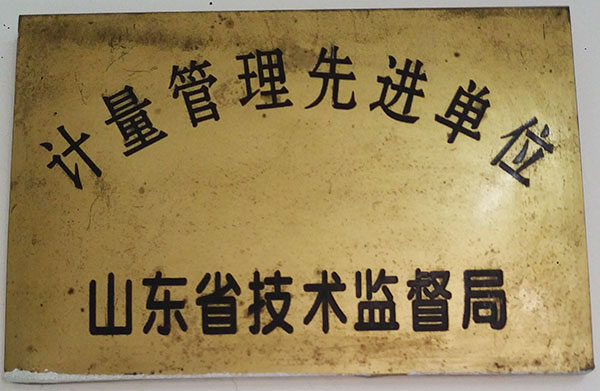 计量管理先进单位
山东省技术监督局